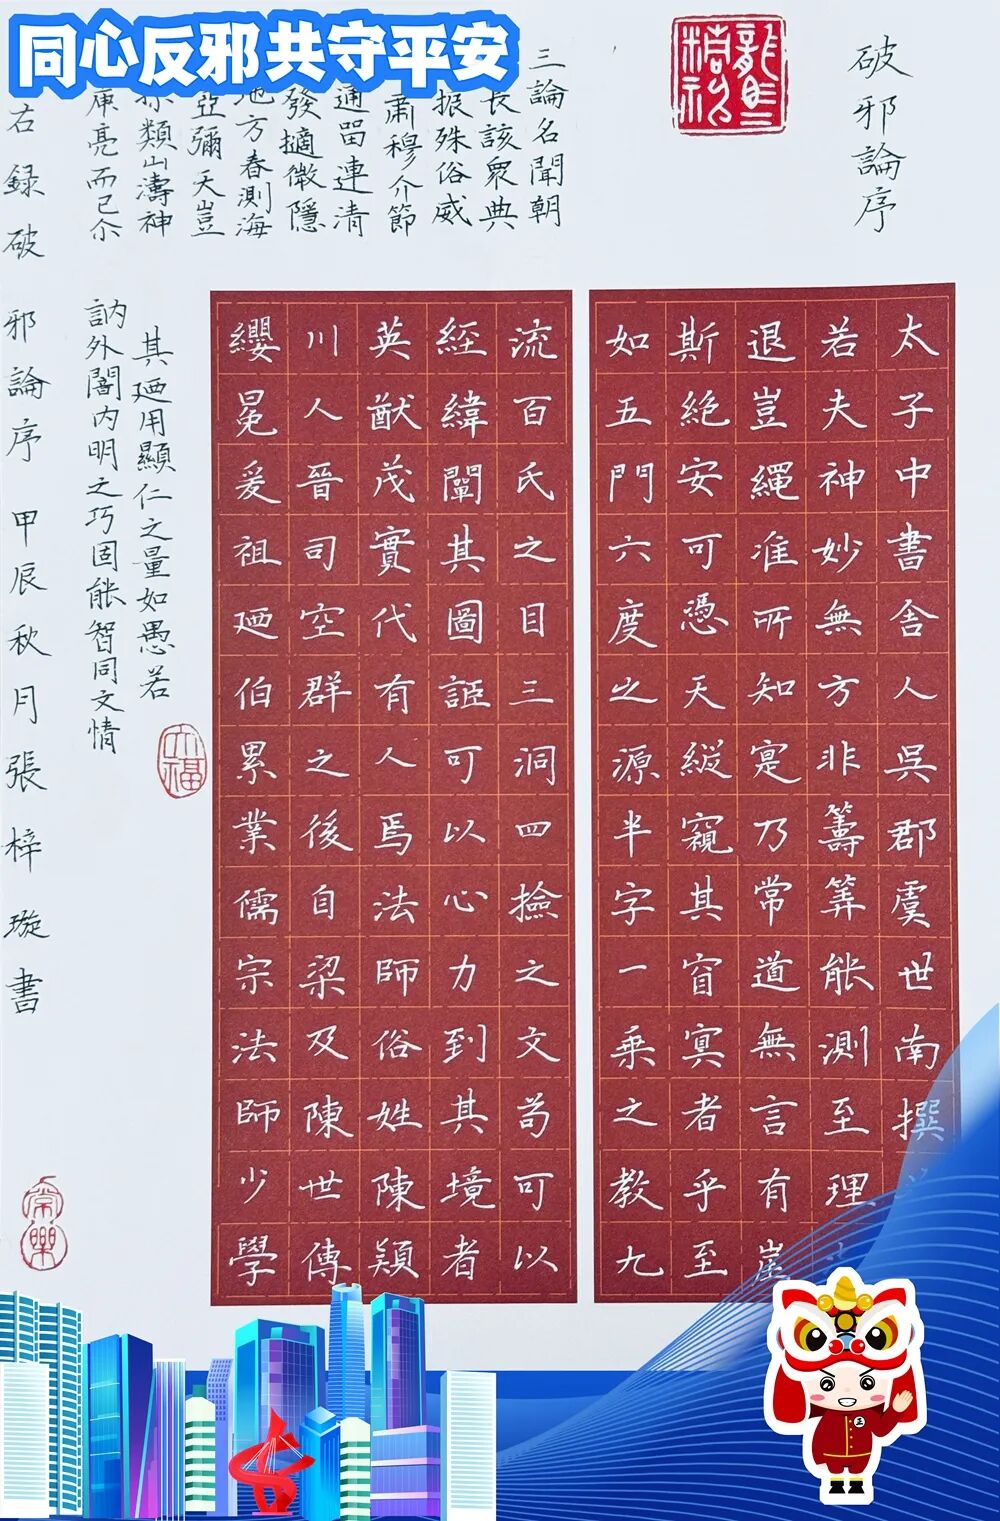 同心反邪共守平安
破邪論序
太子中書舍人吳郡虞世南撰
若夫神妙無方非籌筭能測至理
退豈繩准所知寔乃常道無言有崖
斯絶安可憑天縱窺其窅冥者乎至
如五門六度之源半字一乘之教九
流百氏之目三洞四撿之文苟可以
經緯闡其圖詎可以心力到其境者
英猷茂實代有人焉法師俗姓陳潁
川人晉司空群之後自梁及陳世傳
纓冕爰祖廼伯累業儒宗法師少學
三論名聞朝
長該衆典
振殊俗威
肅穆介節
通留連清
發擿微隱
地方春測海
亞彌天豈
類山濤神
庾亮而已尒
其廼用顯仁之量如愚若
訥外闇内明之巧固能智同文情
右録破邪論序甲辰秋月張梓璇書
常樂
正